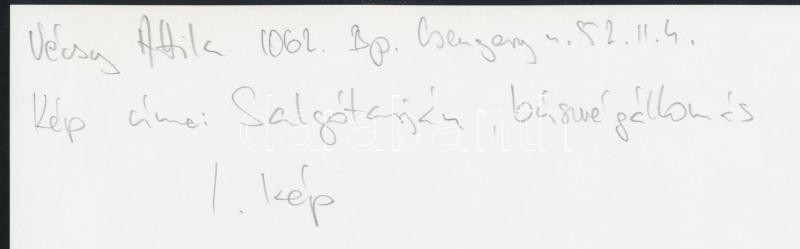 Vécsy Attila 1062. Bp. Csengery u. 52. II. 4.
Kép címe: Salgótarján, buszvégállomás
1. kép